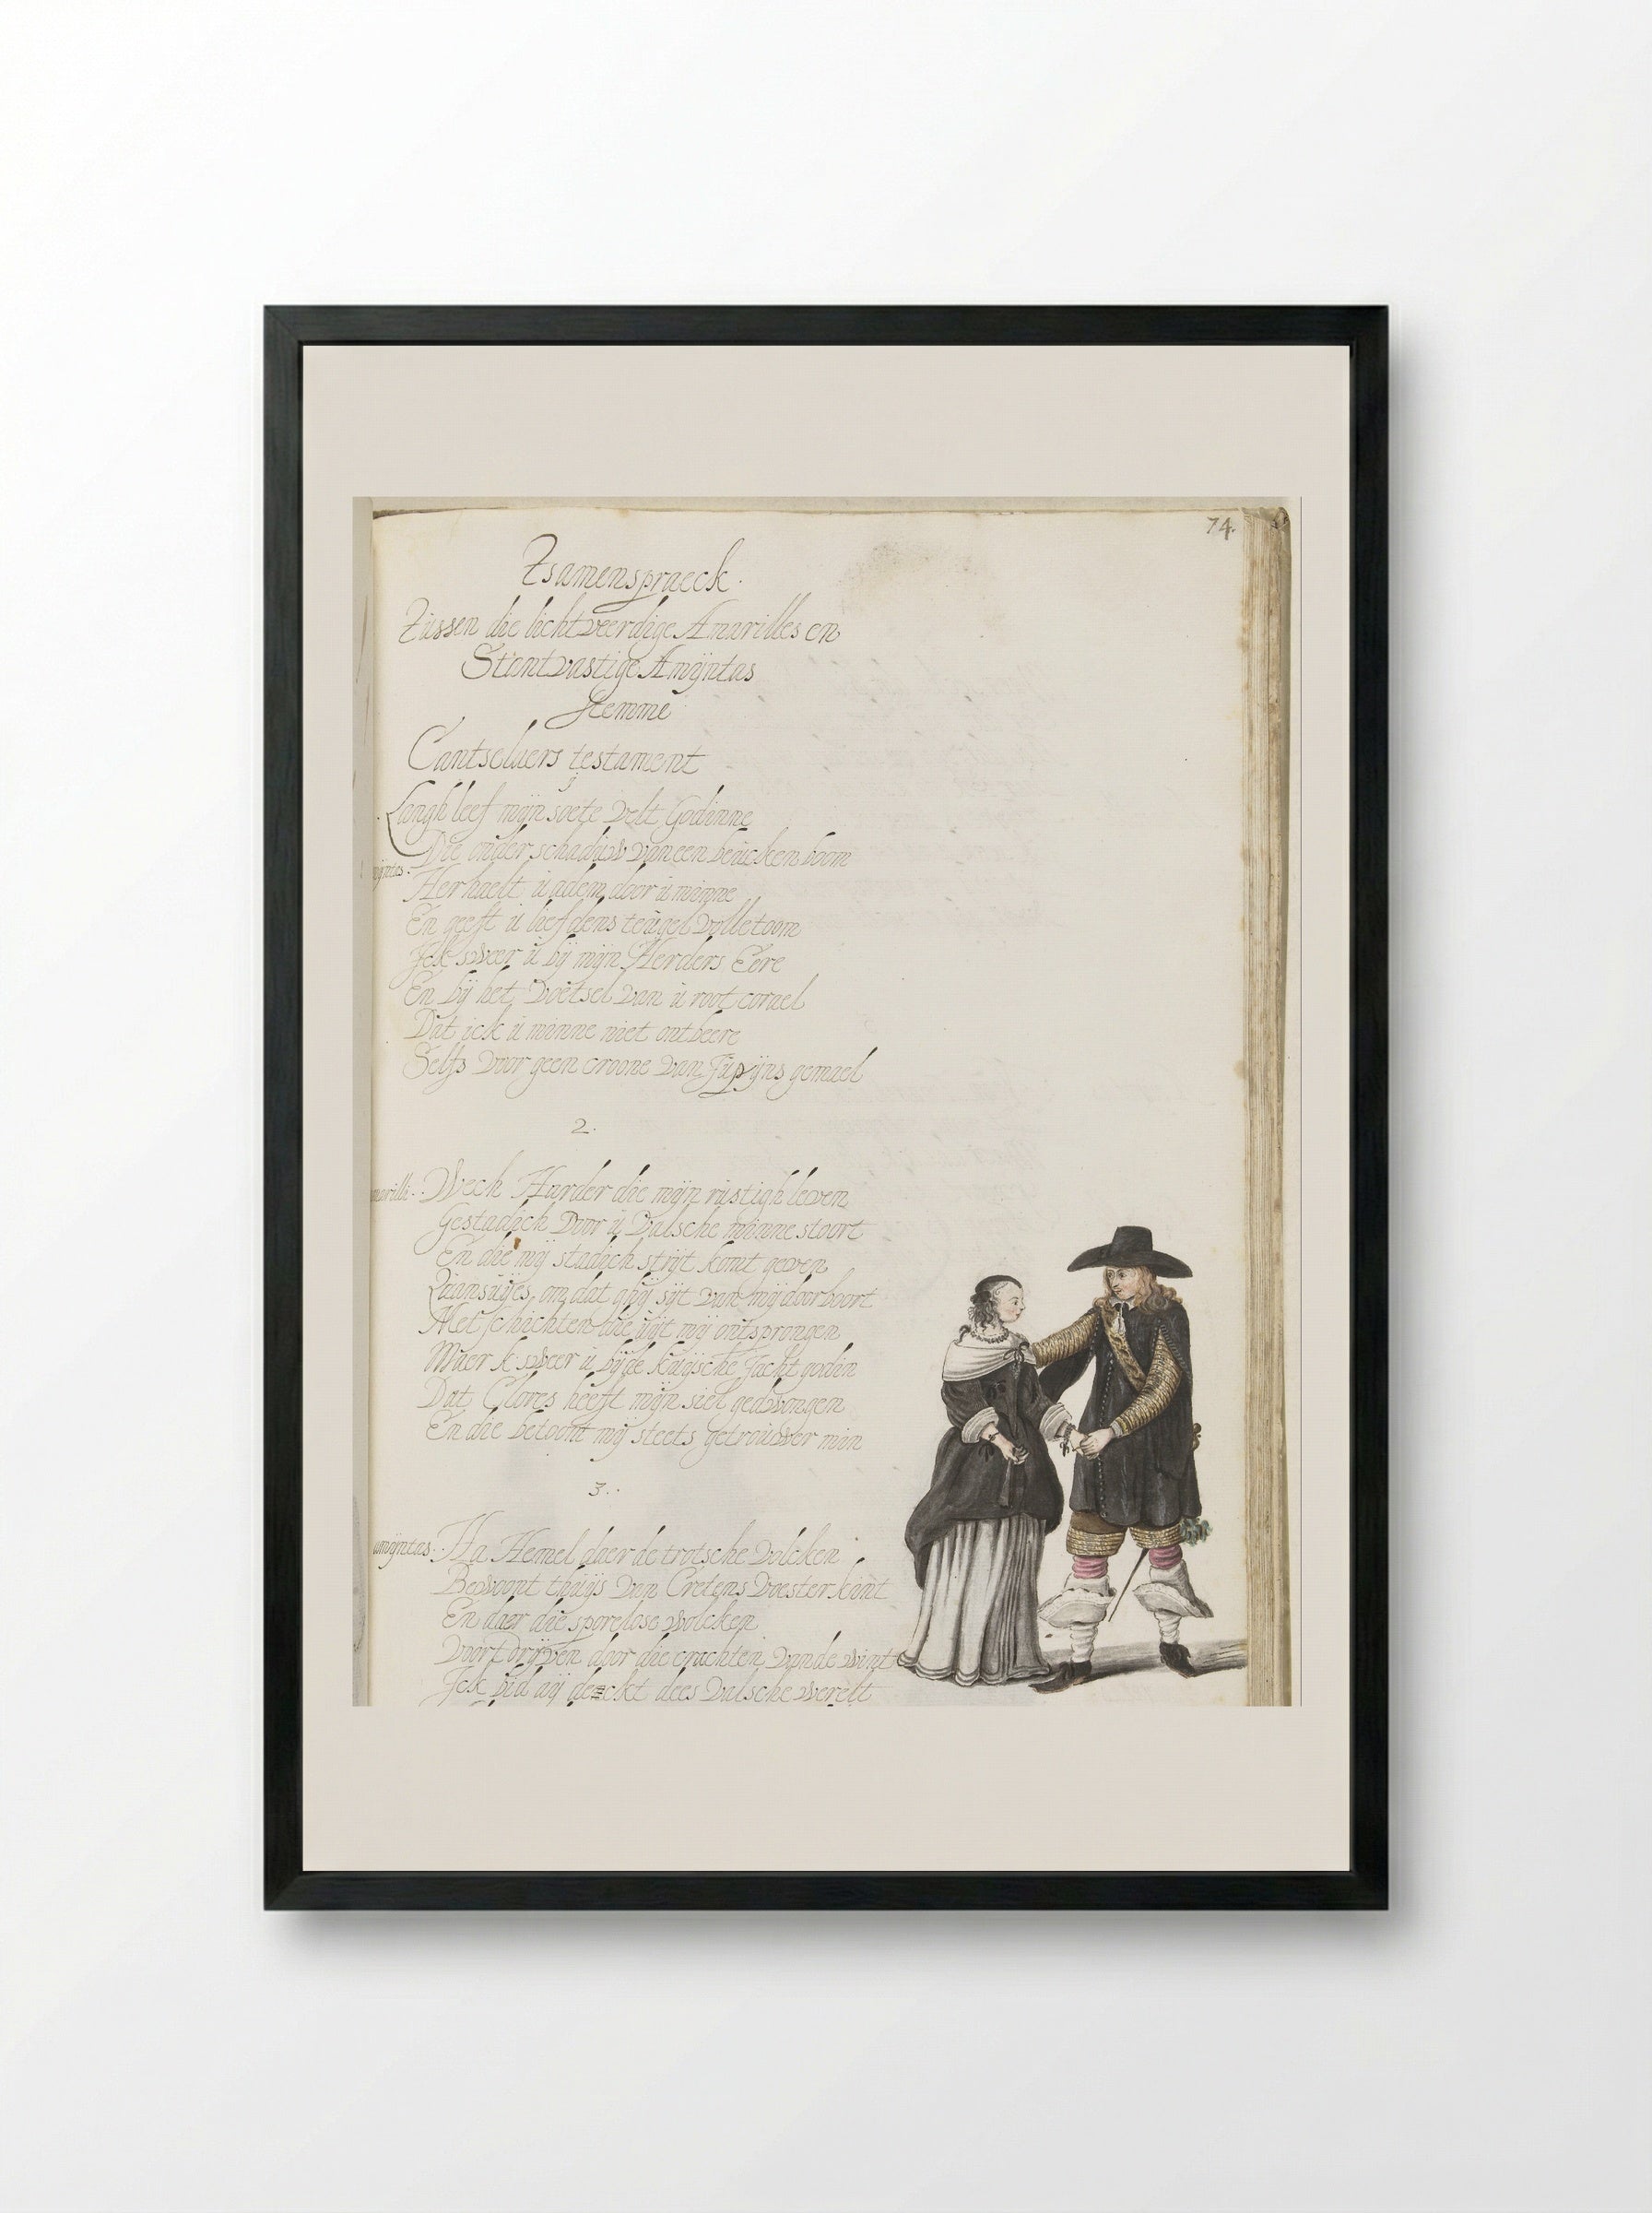 74.
Tsamenspraeck.
Tussen die lichtveerdige Amarilles en
Stantvastige Amÿntas
Stemme
Cantselaers testament
Langh leef mijn soete velt Godinne
Die onder schaduw van een beucken boom
ÿntas.
Herhaelt u adem door u minne
En geeft u liefdens teugel volle toom
Ick sweer u bij mijn Herders Eere
En bij het voetsel van u root corael
Dat ick u minne niet ontbeere
Selfs voor geen croone van Jupijns gemael
2.
marilli. Wech Harder die mijn rustigh leven
Gestadich door u valsche minne stoort
En die mij stadich strijt komt geven
om dat ghij sijt van mij doorboort
Met schichten die uijt mij ontsprongen
Maer k sweer u bijde kuijsche Jacht godin
Dat Clores heeft mijn siel gedwongen
En die betoont mij steets getrouwer min
3.
amÿntas. Ha Hemel daer de trotsche volcken
Bewoont thuijs van Cretens voesterkint
En daer die sporelose wolcken
Voortdrijven door die crachten vande wint
Ick bid dees valsche werelt